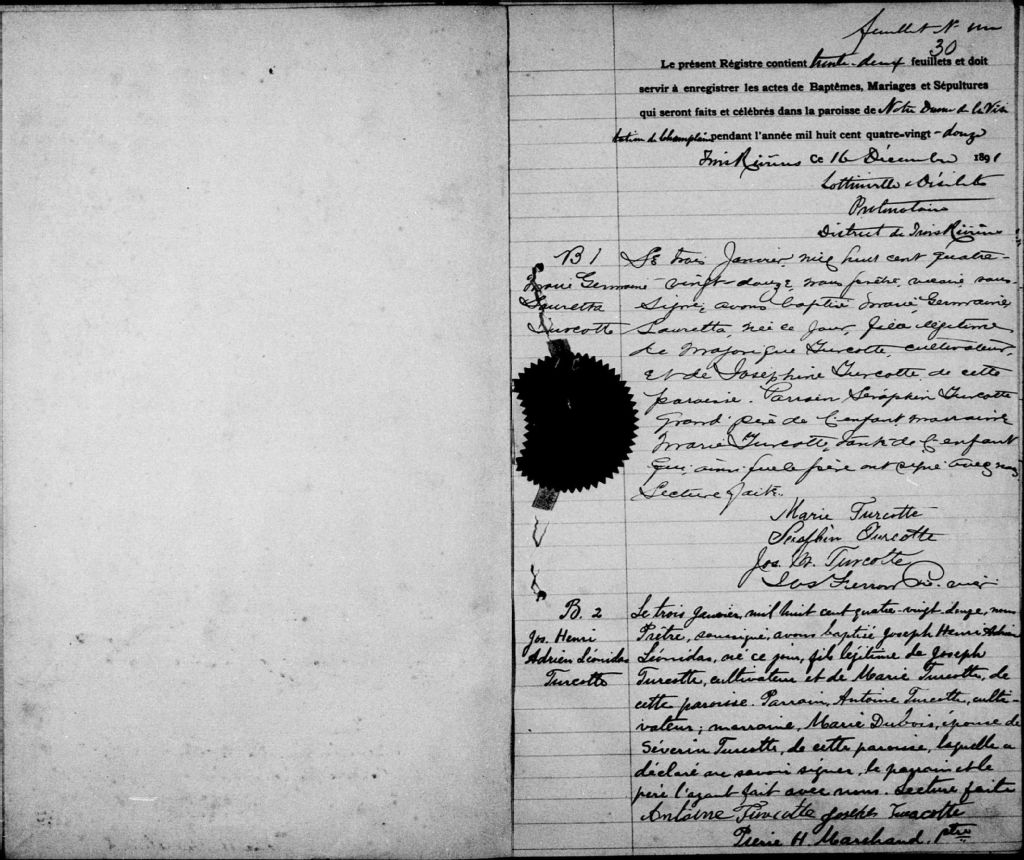 feuillet Nº un
30
Le présent Régistre contient trente-deux feuillets et doit
servir à enregistrer les actes de Baptêmes, Mariages et Sépultures
qui seront faits et célébrés dans la paroisse de Notre Dame de la Visi
tation de Champlain pendant l'année mil huit cent quatre-vingt-douze
Trois Rivières Ce 16 Décembre 1891
Lottinville & Désilets
Protonotaire
District de Trois Rivières
B 1
Marie Germaine
Lauretta
Turcotte
Le trois Janvier, mil huit cent quatre-
vingt-douze, nous prêtre, vicaire sous-
signé, avons baptisé Marie, Germaine,
Lauretta, née ce jour, fille légitime
de Majorique Turcotte, cultivateur,
et de Joséphine Turcotte, de cette
paroisse. Parrain Séraphin Turcotte
grand'père de l'enfant, marraine
Marie Turcotte, tante de l'enfant
qui, ainsi que le père ont signé avec nous
Lecture faite.
Marie Turcotte
Séraphin Turcotte
Jos. M. Turcotte
Ptr. vic.
B. 2
Jos. Henri
Adrien Léonidas
Turcotte
Le trois Janvier, mil huit cent quatre-vingt-douze, nous
Prêtre, soussigné, avons baptisé Joseph Henri Adrien
Léonidas, né ce jour, fils légitime de Joseph
Turcotte, cultivateur et de Marie Turcotte, de
cette paroisse. Parrain, Antoine Turcotte, culti-
vateur; marraine, Marie Dubois, épouse de
Séverin Turcotte, de cette paroisse, laquelle a
déclaré ne savoir signer, le parrain et le
père l'ayant fait avec nous. Lecture faite
Antoine Turcotte Joseph Turcotte
Pierre H. Marchand, Ptre